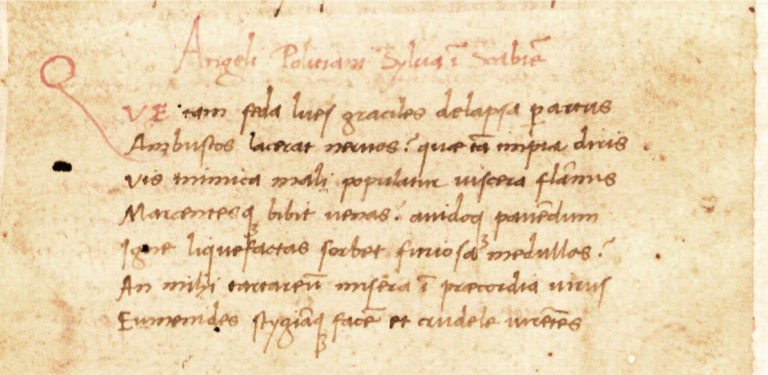 Angeli Politiani Sylva ī Scabiē
QVE tam feda lues graciles delapsa p artus
Ambustos lacerat nervos? quae tā impia diris
Vis inimica mali populatur viscera flāmis
Marcentesq bibit venas? avidoq pavēdum
Igne liquefactas sorbet furiosa medullas?
An mihi tartareū misera ī precordia virus
Eumenides stygiāq facē et crudele